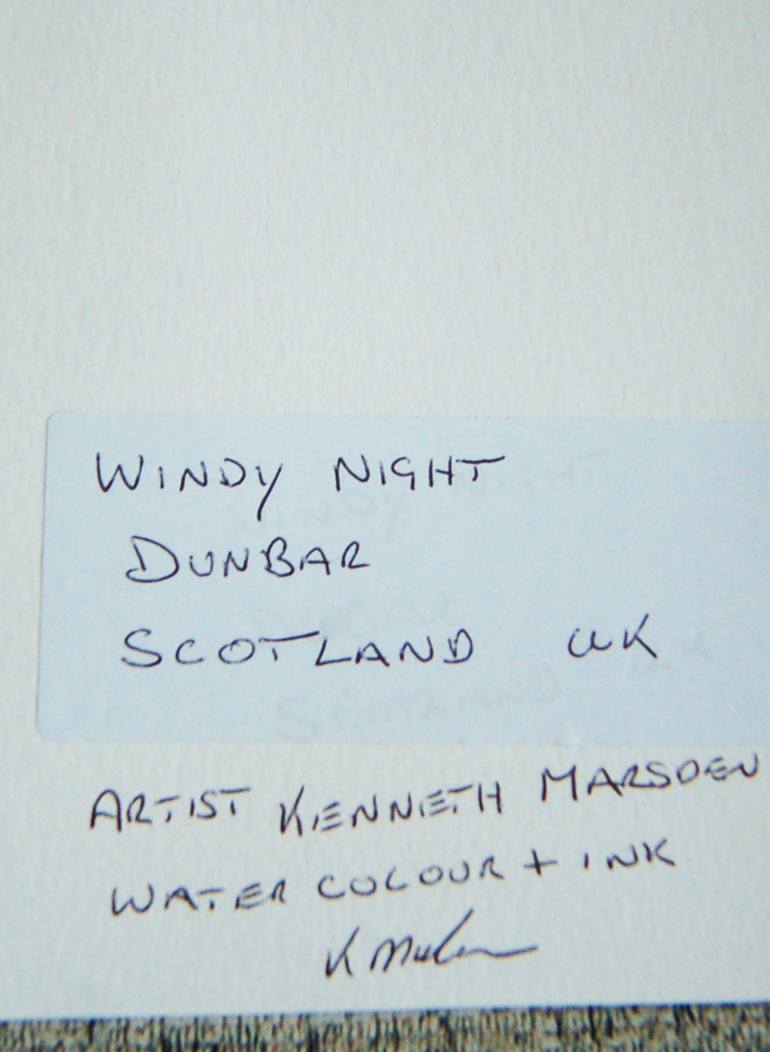 WINDY NIGHT
DUNBAR
SCOTLAND UK
ARTIST KENNETH MARSDEN
WATER COLOUR + INK
K